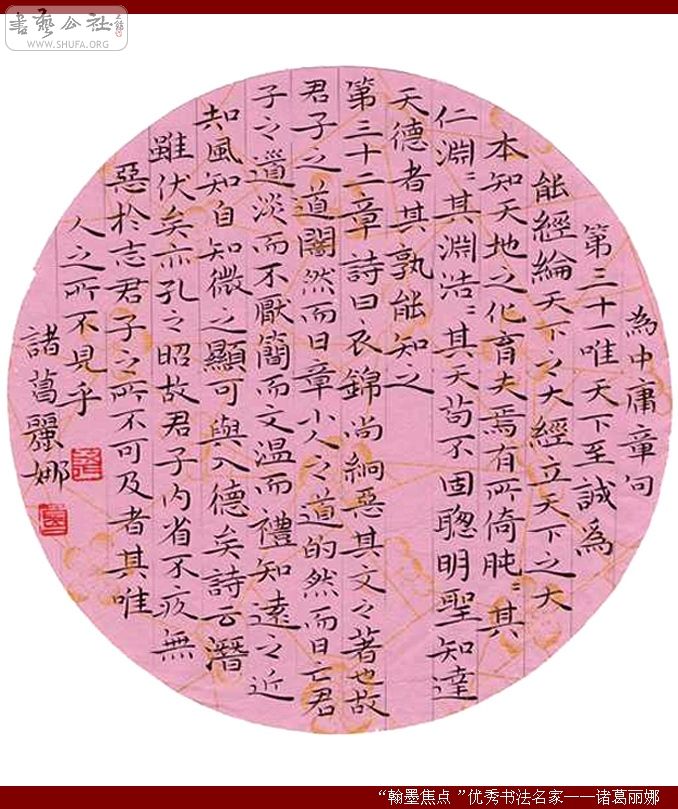 書藝公社
WWW.SHUFA.ORG
為中庸章句
第三十一唯天下至誠為
能經綸天下之大經立天下之大
本知天地之化育夫焉有所倚肫〻其
仁淵〻其淵浩〻其天苟不固聰明聖知達
天德者其孰能知之
第三十二章詩曰衣錦尚絅惡其文之著也故
君子之道闇然而日章小人之道的然而日亡君
子之道淡而不厭簡而文溫而禮知遠之近
知風知自知微之顯可與入德矣詩云潛
雖伏矣亦孔之昭故君子內省不疚無
惡於志君子之所不可及者其唯
人之所不見乎
諸葛麗娜
“翰墨焦点 ”优秀书法名家——诸葛丽娜